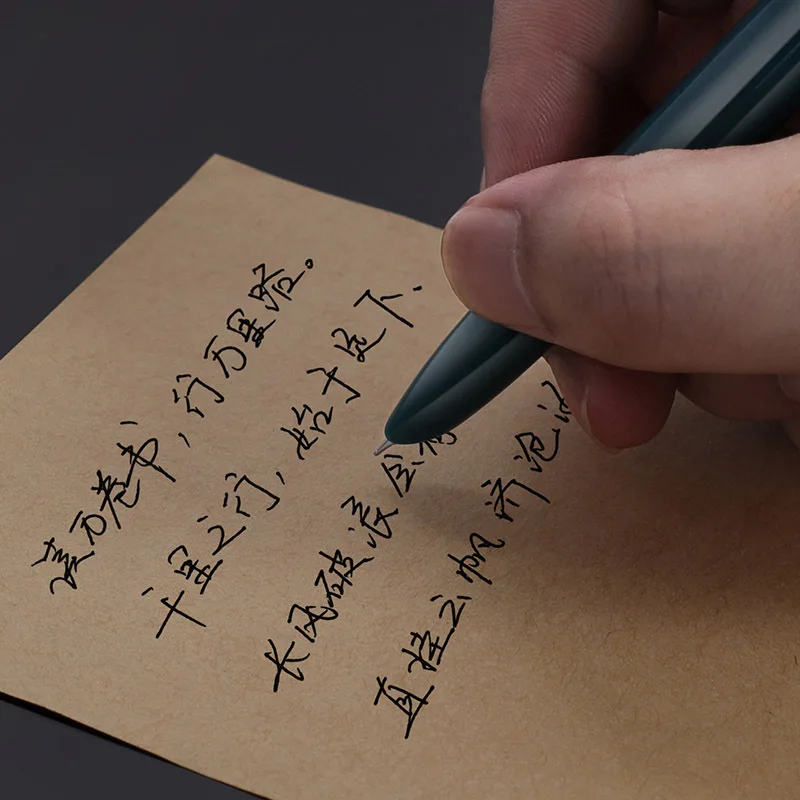 读万卷书，行万里路。
千里之行，始于足下.
长风破浪会有
直挂云帆济沧